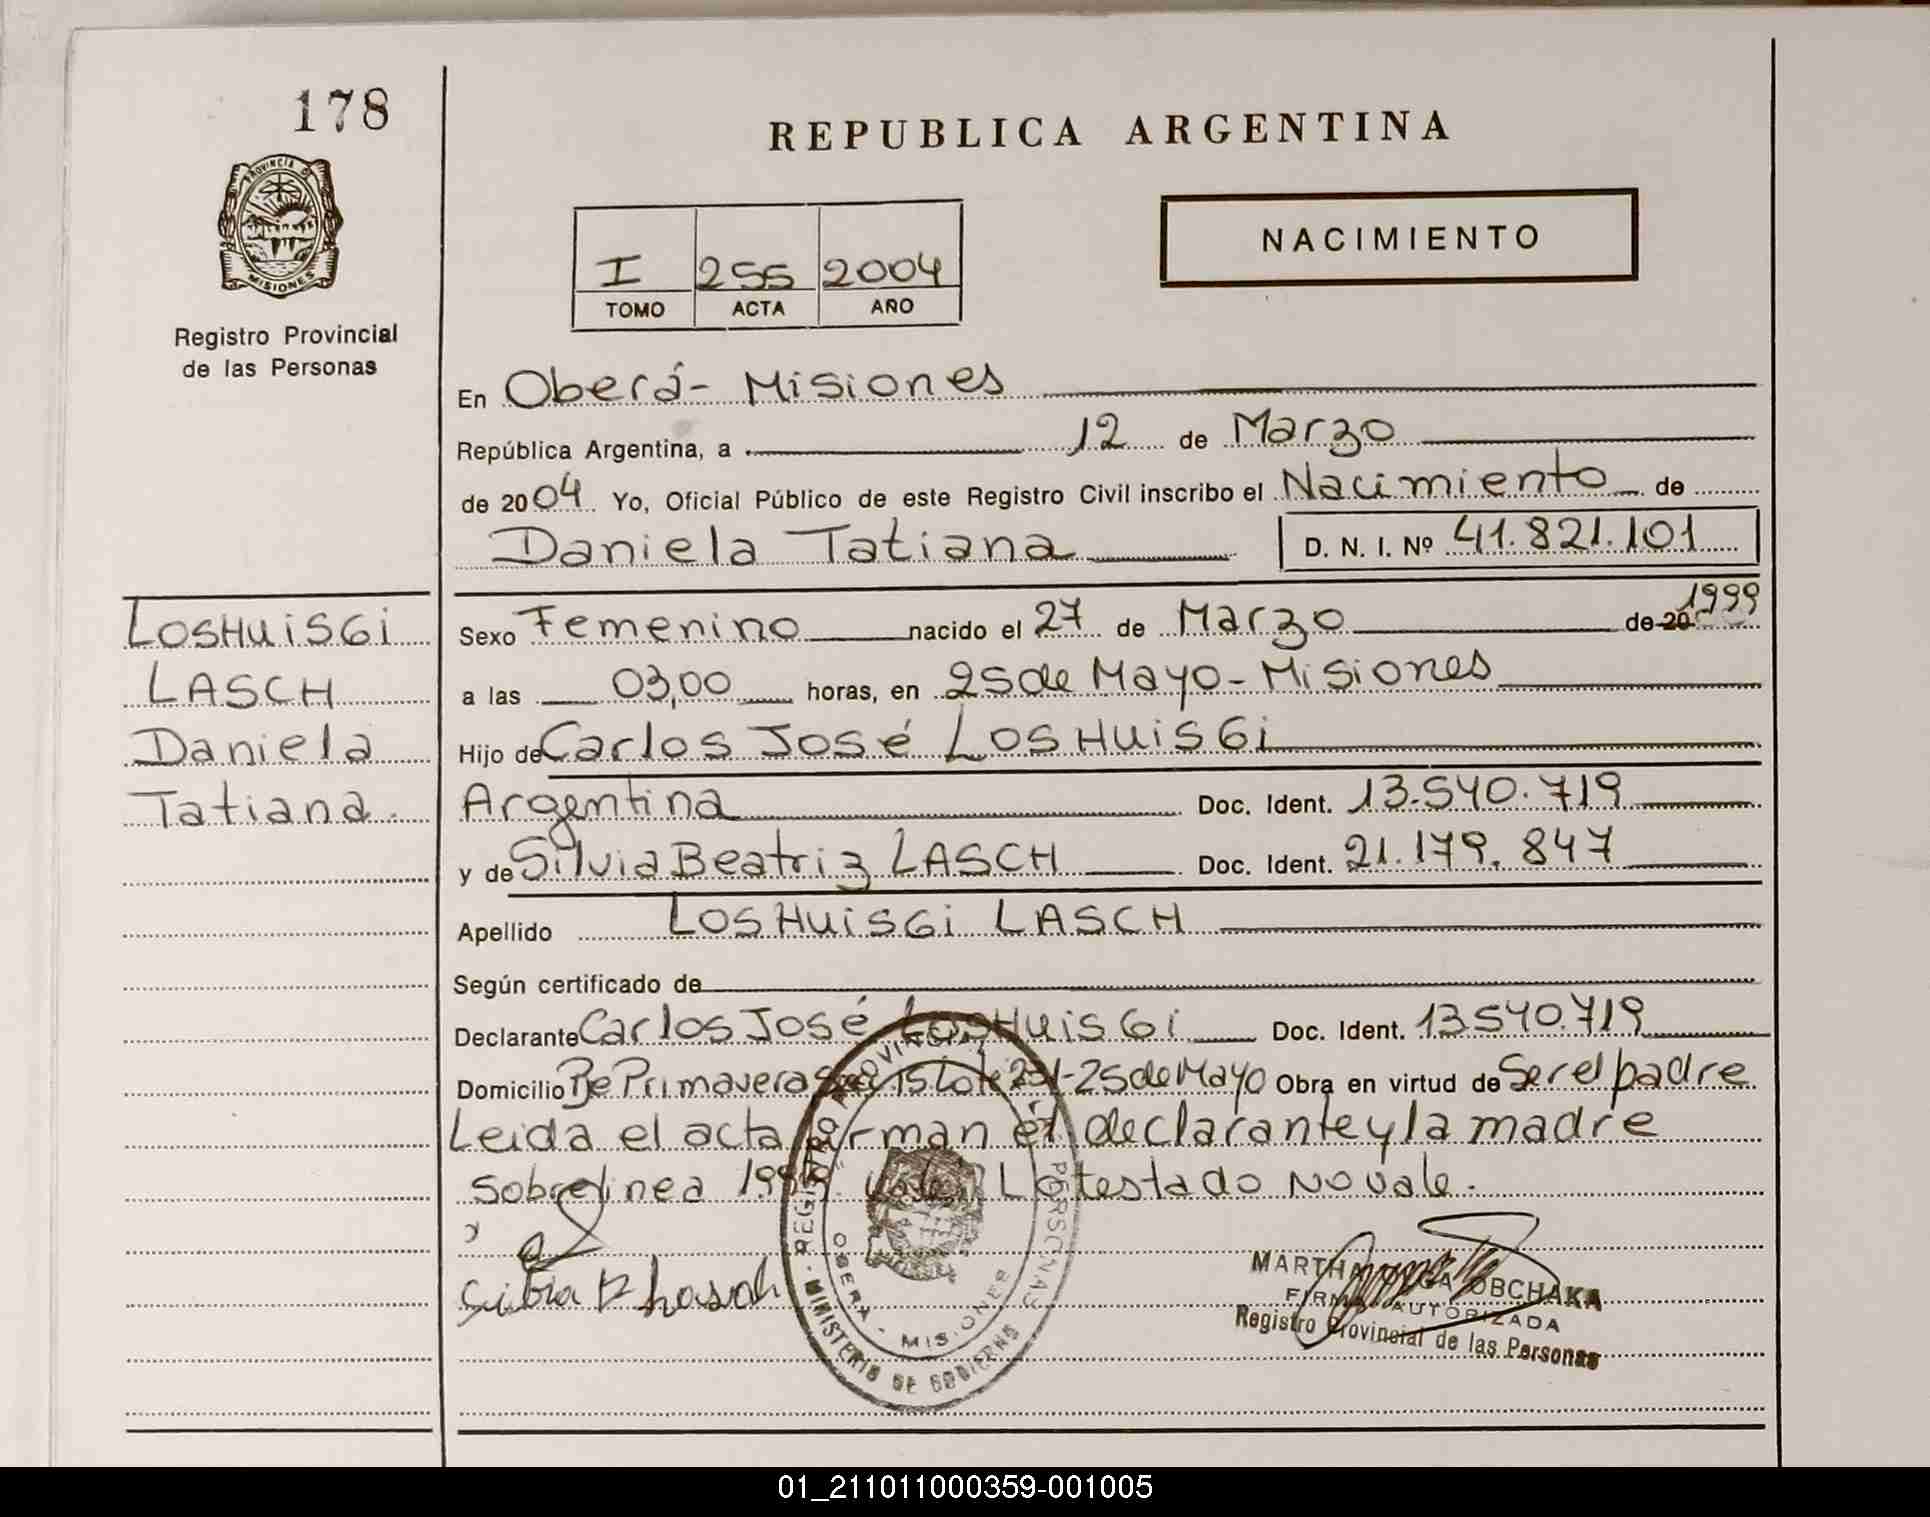 178
PROVINCIA DE
MISIONES
Registro Provincial
de las Personas
REPUBLICA ARGENTINA
I 255 2004
TOMO ACTA AÑO
NACIMIENTO
En Oberá - Misiones
República Argentina, a 12 de Marzo
de 2004 Yo, Oficial Público de este Registro Civil inscribo el Nacimiento de
Daniela Tatiana D. N. I. Nº 41.821.101
LOSHUiSGi
LASCH
Daniela
Tatiana.
Sexo Femenino nacido el 27 de Marzo de 20 1999
a las 03,00 horas, en 25 de Mayo - Misiones
Hijo de Carlos José LOSHUiSGi
Argentina Doc. Ident. 13.540.719
y de Silvia Beatriz LASCH Doc. Ident. 21.179.847
Apellido LOSHUiSGi LASCH
Según certificado de
Declarante Carlos José LOSHUiSGi Doc. Ident. 13540.719
Domicilio Pje Primavera Sec 15 Lote 251-25 de Mayo Obra en virtud de Ser el padre
Leida el acta firman el declarante y la madre
sobrelinea 1999 Vale. Lo testado no vale.
REGISTRO PROVINCIAL PERSONAS
OBERA - MISIONES
MINISTERIO DE GOBIERNO
MARTHA OLGA OBCHAKA
FIRMA AUTORIZADA
Registro Provincial de las Personas
01_211011000359-001005